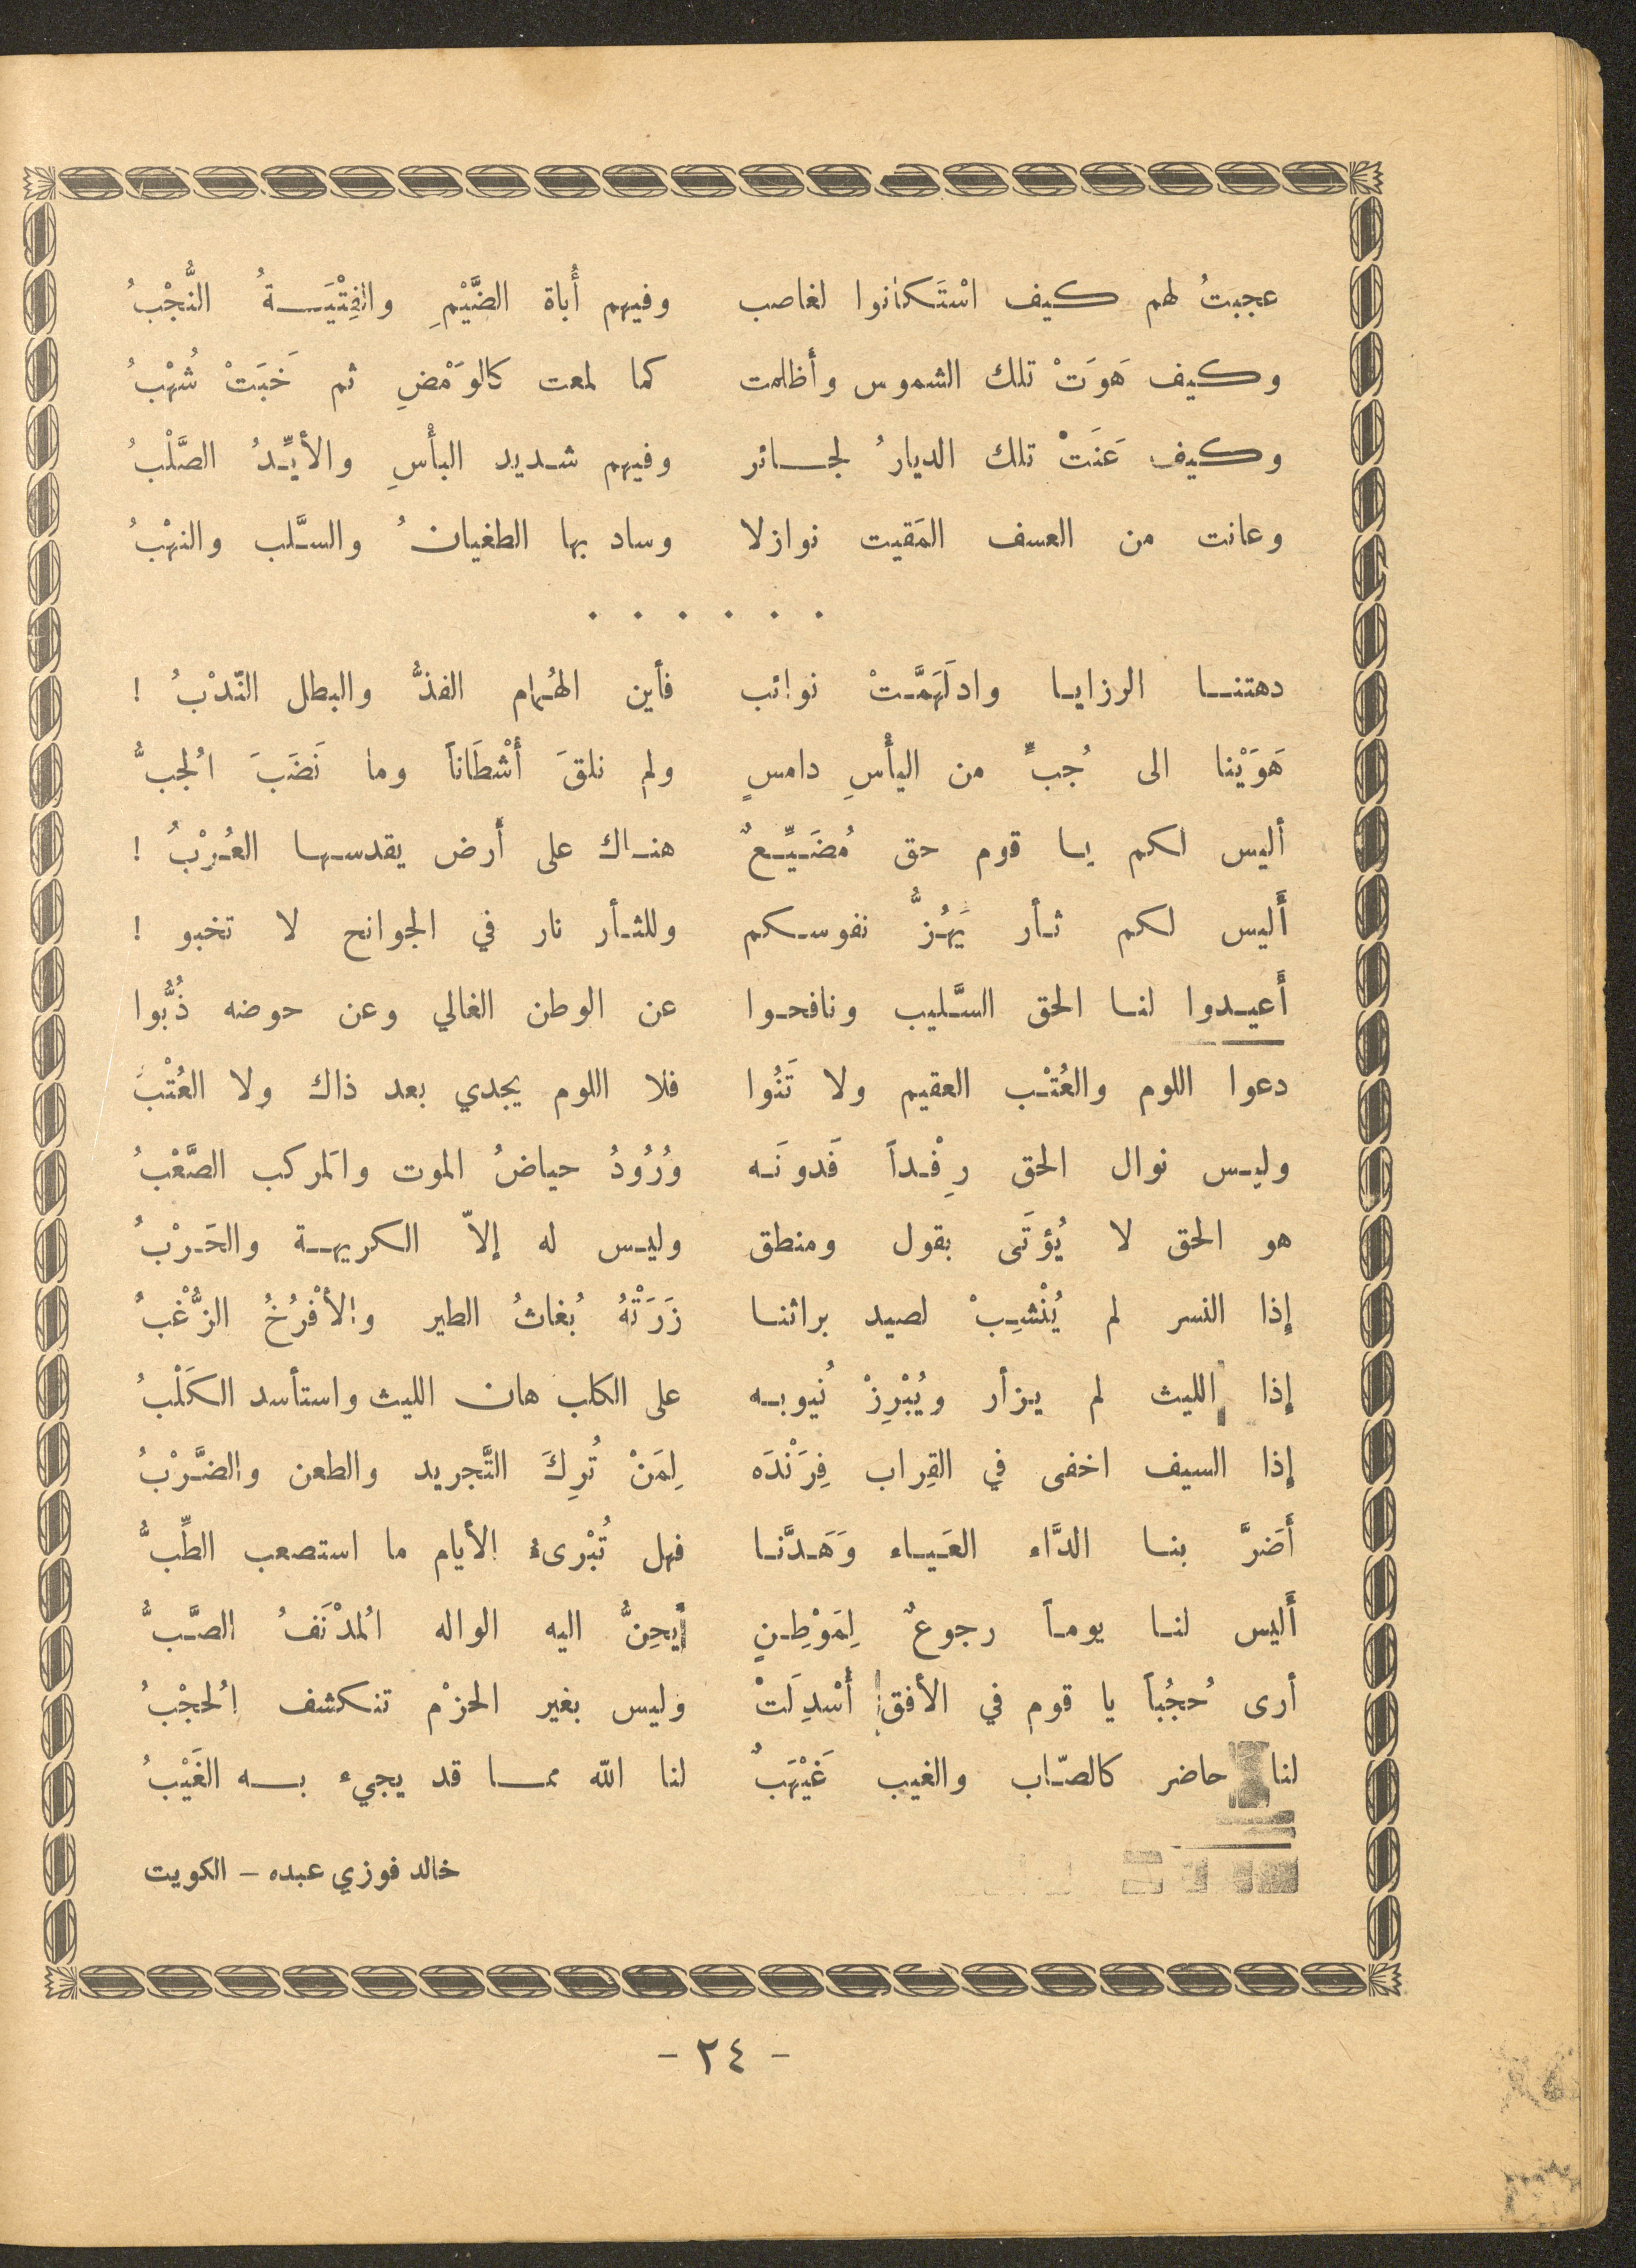 عجبتُ لهم كيف اسْتَكانوا لغاصب وفيهم أُباة الضَّيْمِ والفِتْيَةُ النُّجْبُ
وكيف هَوَتْ تلك الشموس وأظلمت كما لمعت كالوَمْضِ ثم خَبَتْ شُهْبُ
وكيف عَنَتْ تلك الديارُ لجائر وفيهم شديد البأْسِ والأيِّدُ الصَّلْبُ
وعانت من العسف المَقيت نوازلا وساد بها الطغيانُ والسَّلب والنهْبُ
. . . . . .
دهتنا الرزايا وادلَهَمَّتْ نوائب فأين الهُمام الفذُّ والبطل النّدْبُ !
هَوَيْنا الى جُبٍّ من اليأْسِ دامسٍ ولم نلقَ أَشْطَاناً وما نَضَبَ الُجبُّ
أليس لكم يا قوم حق مُضَيِّعٌ هناك على أرض يقدسها العُرْبُ !
أَليس لكم ثأر يَهُزُّ نفوسكم وللثأر نار في الجوانح لا تخبو !
أَعيدوا لنا الحق السَّليب ونافحوا عن الوطن الغالي وعن حوضه ذُبُّوا
دعوا اللوم والعُتْب العقيم ولا تَنُوا فلا اللوم يجدي بعد ذاك ولا العُتْبَ
وليس نوال الحق رِفْداً فَدونَه وُرُودُ حياضُ الموت والَمركب الصَّعْبُ
هو الحق لا يُؤتَى بقول ومنطق وليس له إلاّ الكريهة والحَرْبُ
إِذا النسر لم يُنْشِبْ لصيد براثنا زَرَتْهُ بُغاثُ الطير والأفْرُخُ الزُّغْبُ
إِذا الليث لم يزأر ويُبْرِزْ نُيوبه على الكلب هان الليث واستأسد الكَلْبُ
إِذا السيف اخفى في القِراب فِرَنْدَه لِمَنْ تُرِكَ التَّجريد والطعن والضَّرْبُ
أَضرَّ بنا الدَّاء العَياء وَهَدَّنا فهل تُبْرىءُ الأيام ما استصعب الطِّبُّ
أَليس لنا يوماً رجوعٌ لِمَوْطِنٍ يَحِنُّ اليه الواله الُمدْنَفُ الصَّبُّ
أرى حُجُباً يا قوم في الأفق أُسْدِلَتْ وليس بغير الحزْم تنكشف الُحجْبُ
لنا حاضر كالصّاب والغيب غَيْهَبٌ لنا الله مما قد يجيء به الغَيْبُ
خالد فوزي عبده – الكويت
- ٢٤ -